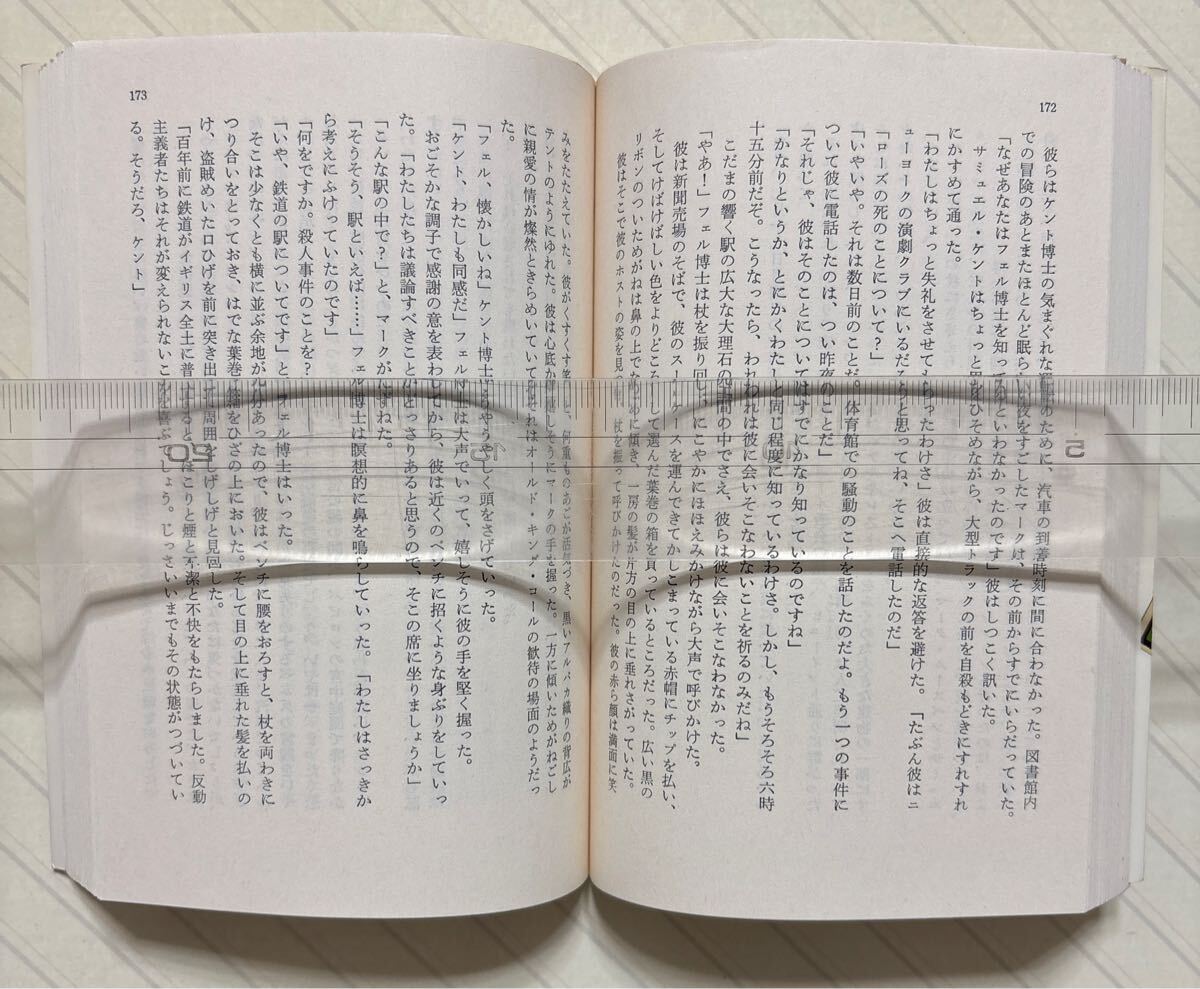 172
彼らはケント博士の気まぐれな運転のために、汽車の到着時刻に間に合わなかった。図書館内
での冒険のあとまたほとんど眠らない夜をすごしたマークは、その前からすでにいらだっていた。
「なぜあなたはフェル博士を知ってるといわなかったのです」彼はしつこく訊いた。
サミュエル・ケントはちょっと眉をひそめながら、大型トラックの前を自殺もどきにすれすれ
にかすめて通った。
「わたしはちょっと失礼をさせてもらったわけさ」彼は直接的な返答を避けた。「たぶん彼はニ
ューヨークの演劇クラブにいるだろうと思ってね、そこへ電話したのだ」
「ローズの死のことについて？」
「いやいや。それは数日前のことだ。体育館での騒動のことを話したのだよ。もう一つの事件に
ついて彼に電話したのは、つい昨夜のことだ」
「それじゃ、彼はそのことについてはすでにかなり知っているのですね」
「かなりというか、とにかくわたしと同じ程度に知っているわけさ。しかし、もうそろそろ六時
十五分前だぞ。こうなったら、われわれは彼に会いそこなわないことを祈るのみだね」
こだまの響く駅の広大な大理石の空間の中でさえ、彼らは彼に会いそこなわなかった。
「やあ！」フェル博士は杖を振り回し、にこやかにほほえみかけながら大声で呼びかけた。
彼は新聞売場のそばで、彼のスーツケースを運んできてかしこまっている赤帽にチップを払い、
そしてけばけばしい色をよりどころにして選んだ葉巻の箱を買っているところだった。広い黒の
リボンのついためがねは鼻の上でななめに傾き、一房の髪が片方の目の上に垂れさがっていた。
彼はそこで彼のホストの姿を見つけ、杖を振って呼びかけたのだった。彼の赤ら顔は満面に笑
173
みをたたえていた。彼がくすくす笑うと、何重ものあごが活気づき、黒いアルパカ織りの背広が
テントのようにゆれた。彼は心底から嬉しそうにマークの手を握った。一方に傾いためがねごし
に親愛の情が燦然ときらめいていて、それはオールド・キング・コールの歓待の場面のようだっ
た。
「フェル、懐かしいね」ケント博士はうやうやしく頭をさげていった。
「ケント、わたしも同感だ」フェル博士は大声でいって、嬉しそうに彼の手を堅く握った。
おごそかな調子で感謝の意を表わしてから、彼は近くのベンチに招くような身ぶりをしていっ
た。「わたしたちは議論すべきことがどっさりあると思うので、そこの席に坐りましょうか」
「こんな駅の中で？」と、マークがたずねた。
「そうそう、駅といえば……」フェル博士は瞑想的に鼻を鳴らしていった。「わたしはさっきか
ら考えにふけっていたのです」
「何をですか。殺人事件のことを？」
「いや、鉄道の駅についてです」と、フェル博士はいった。
そこは少なくとも横に並ぶ余地が充分あったので、彼はベンチに腰をおろすと、杖を両わきに
つり合いをとっておき、はでな葉巻の箱をひざの上においた。そして目の上に垂れた髪を払いの
け、盗賊めいた口ひげを前に突き出して周囲をしげしげと見回した。
「百年前に鉄道がイギリス全土に普及すると、ほこりと煙と不潔と不快をもたらしました。反動
主義者たちはそれが変えられないことを喜ぶでしょう。じっさいいまでもその状態がつづいてい
る。そうだろ、ケント」
5
10
15
50